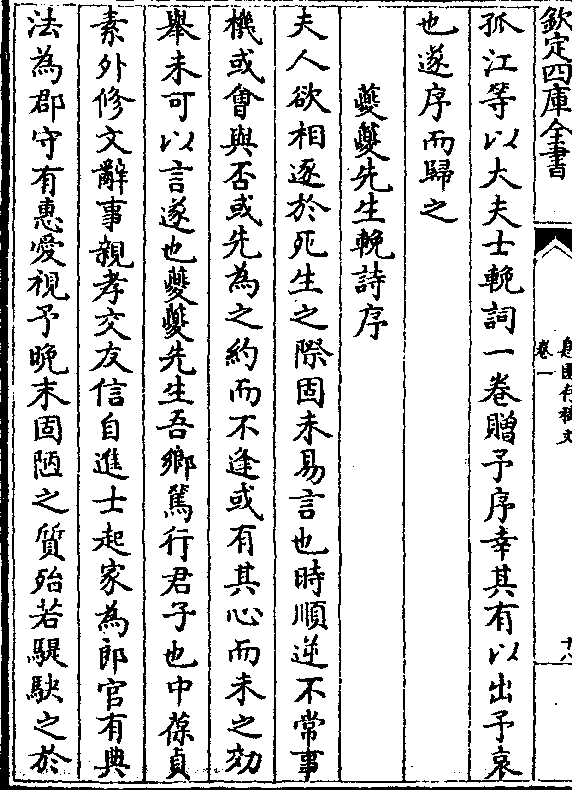 欽定四庫全書
息園存稿文
卷一
十八
孤江等以大夫士輓詞一卷贈予序幸其有以出予哀
也遂序而歸之
䕫䕫先生輓詩序
夫人欲相逐於死生之際固未易言也時順逆不常事
機或會與否或先為之約而不逢或有其心而未之効
舉未可以言遂也䕫䕫先生吾鄉篤行君子也中葆貞
素外修文辭事親孝交友信自進士起家為郎官有典
法為郡守有惠愛視予晚末固陋之質殆若騠駃之於